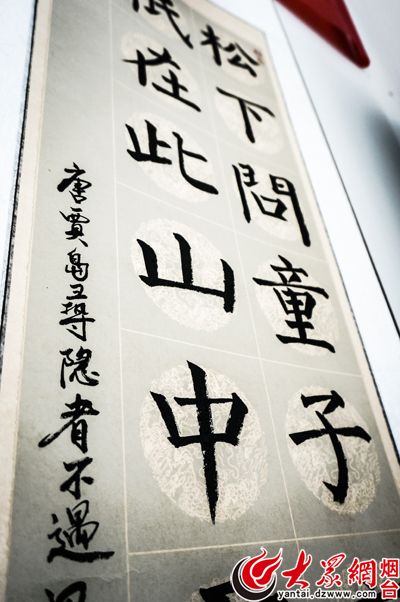 松下問童子
在此山中
唐賈島尋隐者不遇
大眾網 烟台
yantai.dzwww.com